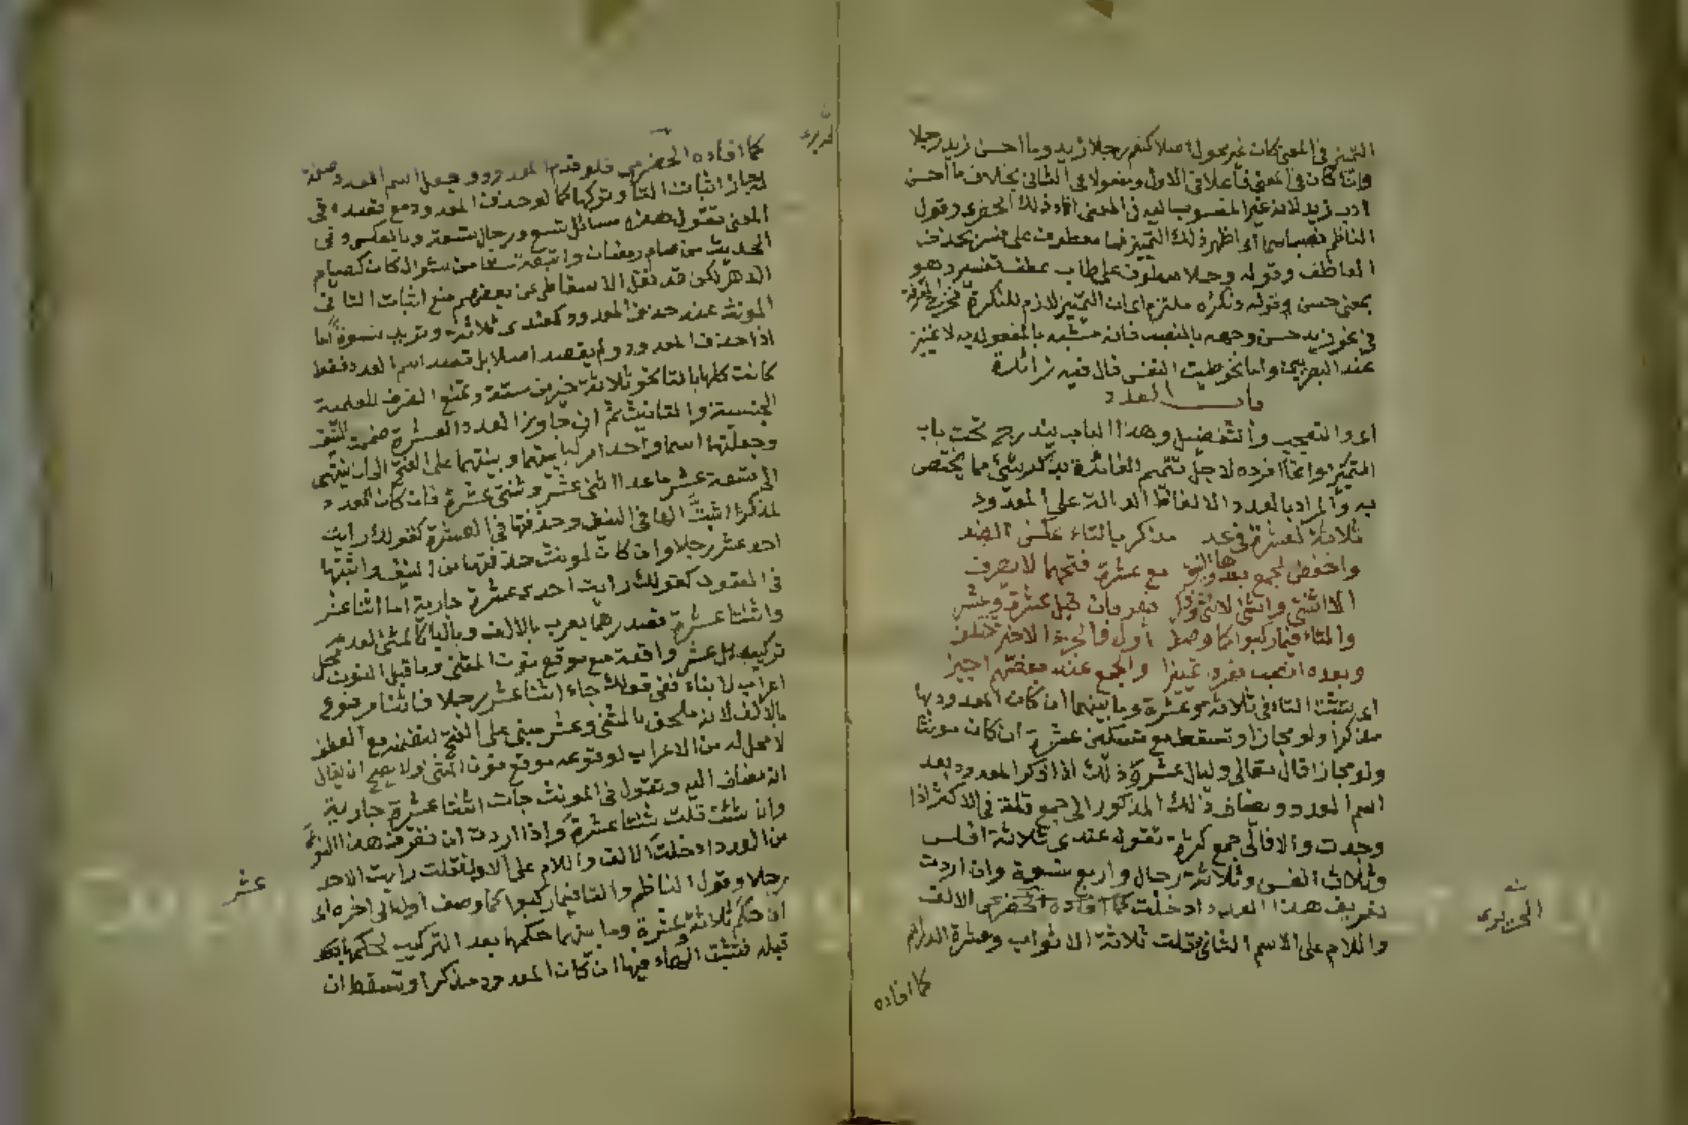 التمييز في المعنى كان غير محول اصلا كنعم رجلا زيد وما احسن زيد رجلا
واذا كان في المعنى فاعلا في الاول ومفعولا في الثاني بخلاف ما احسن
ادب زيد لانه غير المنسوب اليه في المعنى افاد ذلك الحضرى وقول
الناظم فصبا سما اى اظهر ذلك التمييز فسا معطوف على فسر بحذف
العاطف وقوله وجلا معطوف على طاب عطف تفسير وهو
بمعنى حسن وقوله ونكره ملتزم اى ان التمييز لازم للنكرة فخرج المعرفة
في نحو زيد حسن وجهه بالنصب فانه مشبه بالمفعول به لا تمييز
عند البصريين واما نحو طبت النفس قال فيه زائدة
باب العدد
اى والتعجب والتفضيل وهذا الباب يندرج تحت باب
التمييز وانما افرده لاجل تتميم الفائدة بذكر شئ مما يختص
به والمراد بالعدد الالفاظ الدالة على المعدود
ثلاثة لعشرة في عد مذكر بالتاء عكس الضد
واخفض لجمع بعدها والنيف مع عشرة فتحهما لا يصرف
الا اثنتي واثني لانثى وذكر
والتاء فيما ركبوا كما وصف اول والجزء الاخر تختلف
وبعده انصب مفرد تمييزا والجمع عند بعضهم اجيز
اى تثبت التاء في ثلاثة وعشرة وما بينهما ان كان المعدود بها
مذكرا ولو مجازا وتسقط مع تسكين عشرة ان كان مونثا
ولو مجازا قال تعالى وليال عشر وذلك اذا ذكر المعدود بعد
اسم العدد ويضاف ذلك المذكور الى جمع قلة في الاكثر اذا
وجدت والا فالى جمع كثرة تقوله عندى ثلاثة افلس
وثلاث انفس وثلاثة رجال واربع نسوة وان اردت
تعريف هذا العدد ادخلت كما افاده الحضرمى الالف
الحريرى
واللام على الاسم الثاني فقلت ثلاثة الاثواب وعشرة الدراهم
كما افاده
كما افاده الحضرمي فلو قدم المعدود وجعل اسم العدد صفة
لجاز اثبات التاء وتركها كما لو حذف المعدود مع قصده في
المعنى تقول هذه مسائل تسع ورجال تسعة وبالعكس وفي
الحديث من صام رمضان واتبعه ستا من شوال كان كصيام
الدهر لكن قد نقل الاسقاطي عن بعضهم منع اثبات التاء في
المونث عند حذف المعدود كعندى ثلاثة وتريد نسوة اما
اذا حذف المعدود ولم يقصد اصلا بل قصد اسم العدد فقط
كانت كلها بالتا نحو ثلاثة خير من ستة وتمنع الصرف للعلمية
الجنسية والتانيث ثم ان جاوز العدد العشرة ضممت النيف
وجعلتها اسما واحدا مركبا معهما وبينتهما على الفتح الى ان ينتهى
الى تسعة عشر ما عدا اثنى عشر وثنتى عشرة فان كان العدد
لمذكر اثبت الها في النيف وحذفتها في العشرة كقولك رايت
احد عشر رجلا وان كان لمونث حذفتها من النيف واثبتها
في العقود كقولك رايت احدى عشرة جارية اما اثنا عشر
واثنتا عشرة فصدرهما يعرب بالالف وباليا كالمثنى لعدم
تركيبه بل عشر واقعة مع موقع نون المثنى وما قبل النون محل
اعراب لا بناء ففي قولك جاء اثنا عشر رجلا فاثنا مرفوع
بالالف لانه ملحق بالمثنى وعشر مبني على الفتح لتضمنه مع العطف
لا محل له من الاعراب لوقوعه موقع نون المثنى ولا يصح ان يقال
انه مضاف اليه وتقول في المونث جات اثنتا عشرة جارية
وان شئت قلت ثنتا عشرة واذا اردت ان تعرف هذا النوع
من العدد ادخلت الالف واللام على الاول فقلت رايت الاحد
عشر
رجلا وقول الناظم والتا فيما ركبوا كما وصف اول الى اخره اى
ان حكم ثلاثة وعشرة وما بينهما حكمها بعد التركيب كحكمها
قبله فتثبت الهاء فيها ان كان المعدود مذكرا وتسقط ان